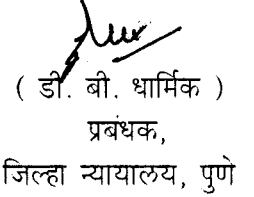 ( डी. बी. धार्मिक )
प्रबंधक,
जिल्हा न्यायालय, पुणे